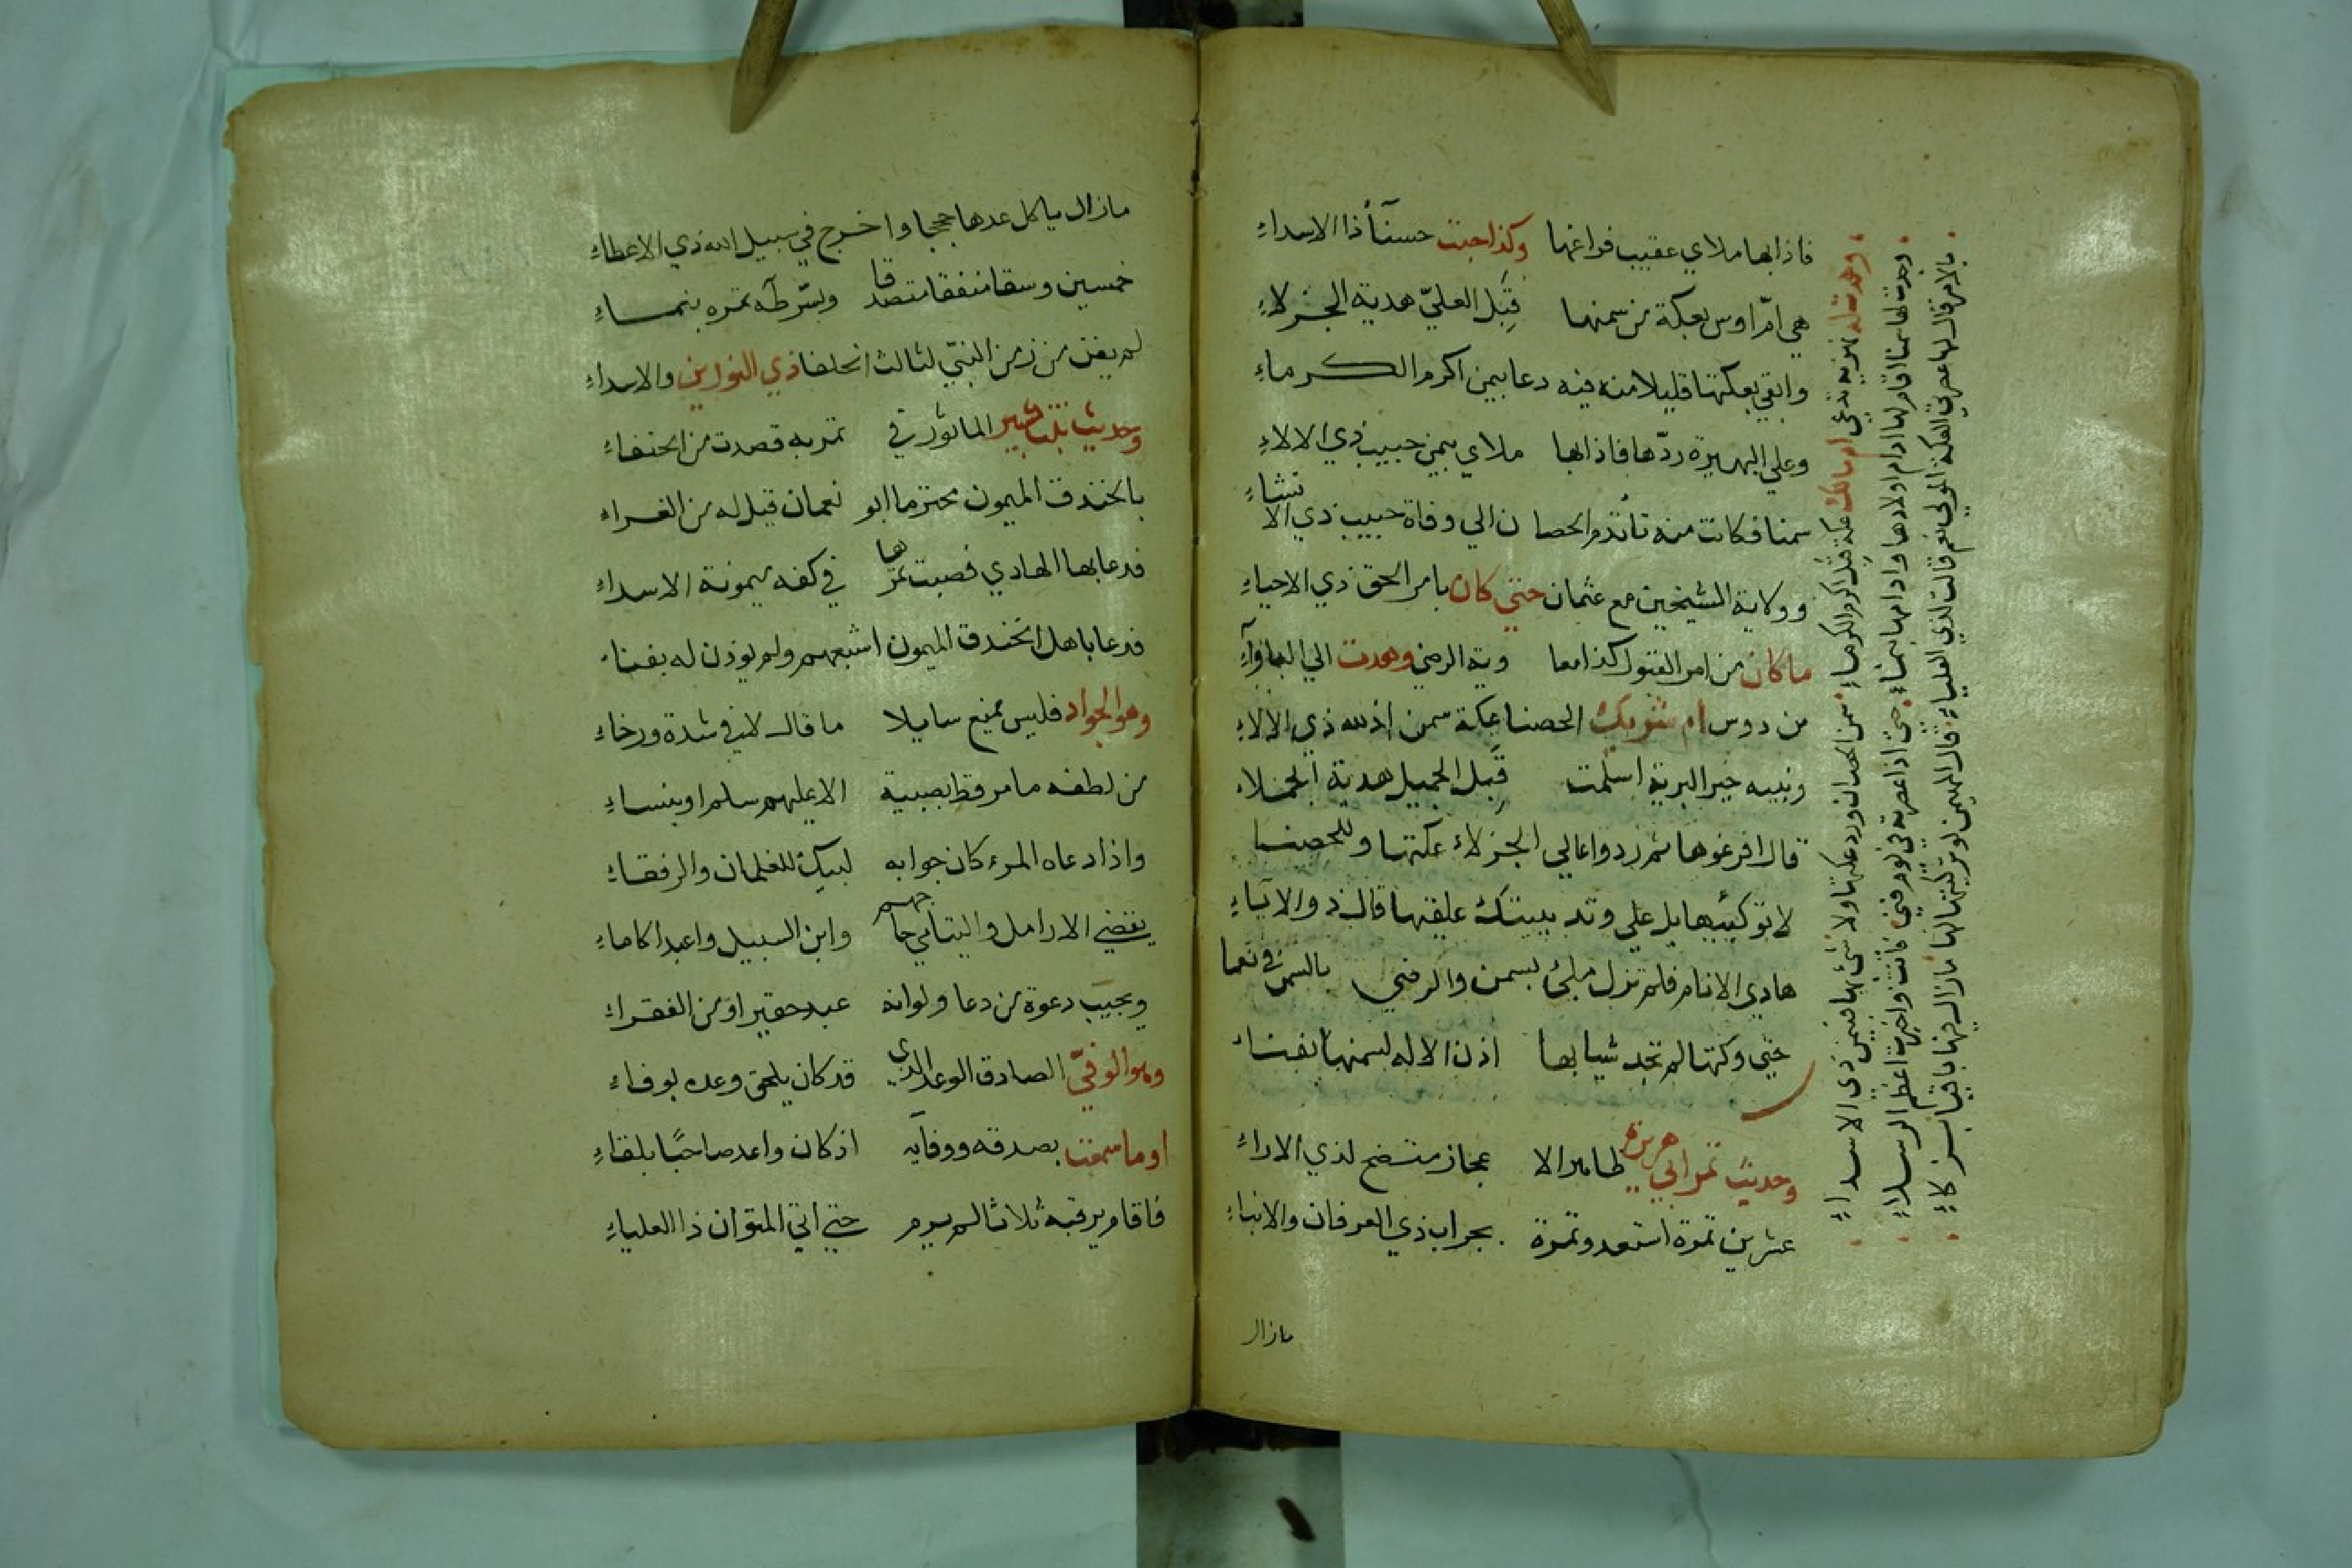 فاذابها ملاي عقيب فراغها وكذا جبت حسنآ أذا الاسداءِ
هي امّ اوس بعكة من سمنها قَبِل العليّ هدية الجزلاءِ
وابقي بعكتها قليلا منه فيه دعا بيمن اكرم الكرماءِ
وعلي البهيرة ردّها فاذابها ملاي بيمن حبيب ذي الالاءِ
سمنا فكانت منه تأتدم الحصا ن الي وفاة حبيب ذي الانشاءِ
وولاية الشيخين مع عثمان حتي كان بامر الحق ذي الاحياءِ
ما كان من امر القتول كذا معا وية الرضي وهدت الي
من دوس ام شريك الحصنا عكة سمن اذ لله ذي الالاءِ
ونبيه خير البرية اسلمت قَبِل الجميل هدية الجملاء
قال افرغوها ثم ردوا عالي الجزلاء عكتها وللحصنا
لا توكئيها بل علي وتد ببيتك علقيها قال ذو الانباءِ
هادي الانام فلم تزل ملئ بسمن والرضي بالسمن في نعما
حتي وكتها لم تجد شيا بها اذن الاله لسمنها بفناء
وحديث تمر ابي هريرة ظاهر الا عجاز متضح لذي الاراءِ
عشرين تمرة استعد وتمرة بجراب ذي العرفان والانباءِ
مازال
وهدت له نهزية تدعي ام مالك عكة قبل اكرم الكرماءِ سمن الحصان ورد عكتها ولا شئ بها فبيمن ذي الاسداءِ
وجدت بها سمنا اقام لها ادام اولادها وادامها بنماءِ حتي اذا عصرته في يوم فني فاتت واخبرت اعظم الرسلاءِ
بالامر قال لها عصرتي العكة المولي نعم قالت لذي العلياءِ قال المهيمن لو تركتها لها مازال فيها باقيا بزكاءِ
مازال ياكل عدها حججا واخرج في سبيل الله ذي الاعطاءِ
خمسين وسقا منفقا متصدقا وبسّر طه تمره بنماءِ
لم يفن من زمن النبيّ لثالث الخلفا ذي النورين والاسداءِ
وحديث الماثور في تمر به قصدت من الحنفاءِ
بالخندق الميمون محترما ابو نعمان قيل له من الفراء
فدعا بها الهادي فصبت تمرها في كفه ميمونة الاسداءِ
فدعا باهل الخندق الميمون اشبعهم ولم يوذن له بفناء
وهو الجواد فليس يمنع سايلا ما قال لا في شدة ورخاءِ
من لطفه ما مر قط بصبية الا عليهم سلم او بنساءِ
واذا دعاه المرء كان جوابه لبيك للغلمان والرفقاءِ
يقضي الارامل واليتامي حاجهم وابن السبيل واعبدا كاماءِ
ويجيب دعوة من دعا ولو انه عبد حقير او من الفقراءِ
وهو الوفيّ الصادق الوعد الذي قد كان يلحق وعده بوفاءِ
او ما سمعت بصدقه ووفآيه اذ كان واعد صاحبًا بلقاءِ
فاقام يرقبه ثلاثا لم يرم حتي اتي المتوان ذا العلياءِ